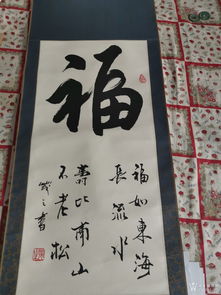 福
福如東海
長流水
壽比南山
不老松